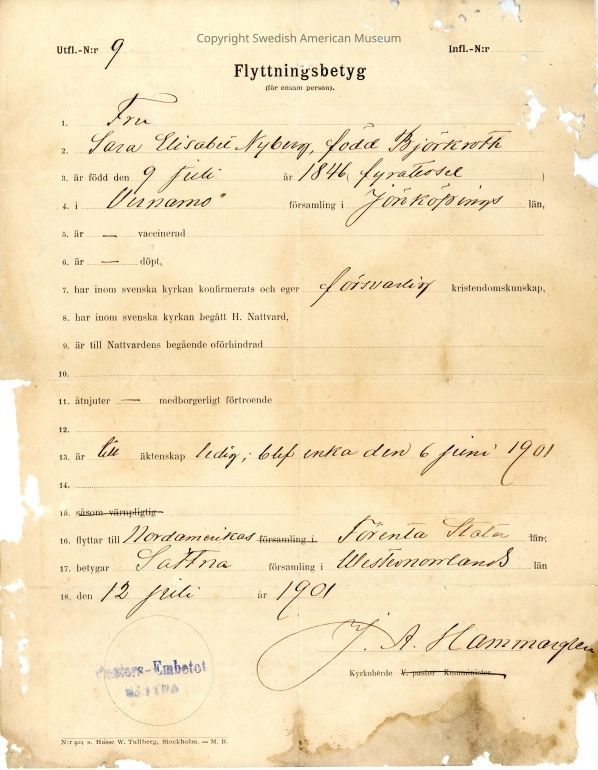 Copyright Swedish American Museum
Utfl.-N:r 9 Infl.-N:r
Flyttningsbetyg
(för ensam person).
1. Fru
2. Sara Elisabet Nyberg, född Björkroth
3. är född den 9 juli år 1846 (fyratiosex)
4. i Vernamo församling i Jönköpings län,
5. är — vaccinerad
6. är — döpt,
7. har inom svenska kyrkan konfirmerats och eger försvarlig kristendomskunskap,
8. har inom svenska kyrkan begått H. Nattvard,
9. är till Nattvardens begående oförhindrad
10.
11. åtnjuter — medborgerligt förtroende
12.
13. är till äktenskap ledig; blef enka den 6 juni 1901
14.
15. såsom värnpligtig
16. flyttar till Nordamerikas församling i Förenta Stater län;
17. betygar Sättna församling i Westernorrlands län
18. den 12 juli år 1901
J. A. Hammargren
Kyrkoherde V. pastor Komminister.
Pastors-Embetet
N:r 904 a. Hasse W. Tullberg, Stockholm. — M. B.